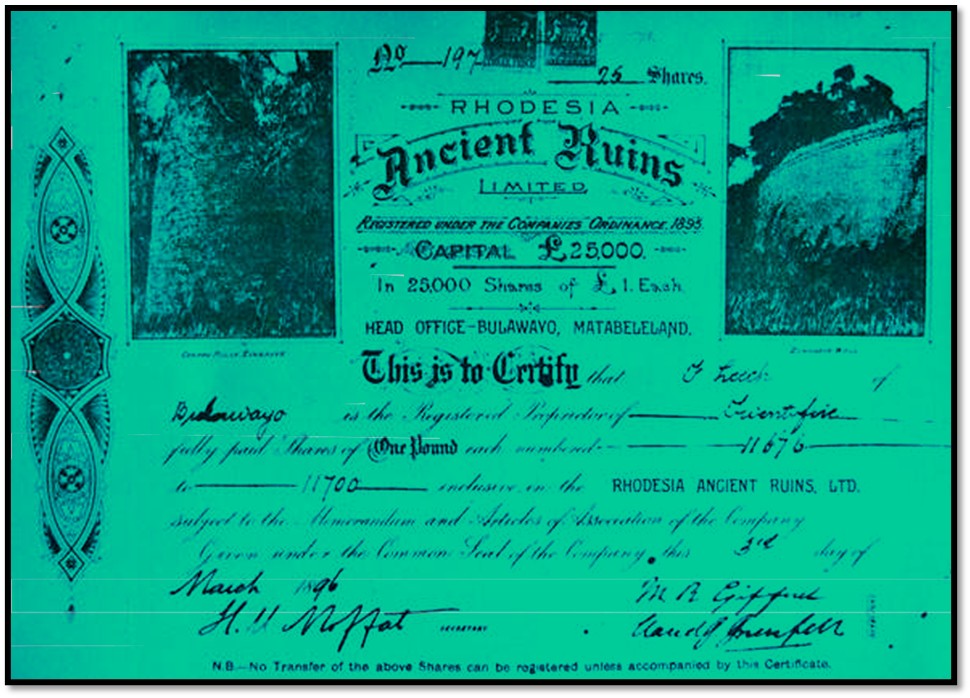 No 197
25 Shares.
RHODESIA
Ancient Ruins
LIMITED.
REGISTERED UNDER THE COMPANIES' ORDINANCE, 1895.
CAPITAL £25,000.
In 25,000 Shares of £1. Each.
HEAD OFFICE–BULAWAYO, MATABELELAND.
This is to Certify that Leech of
Bulawayo is the Registered Proprietor of Twentyfive
fully paid Shares of One Pound each numbered 11676
to 11700 inclusive in the RHODESIA ANCIENT RUINS, LTD.
subject to the Memorandum and Articles of Association of the Company
Given under the Common Seal of the Company, this 3rd day of
March 1896
H. U Moffat SECRETARY
N.B.—No Transfer of the above Shares can be registered unless accompanied by this Certificate.